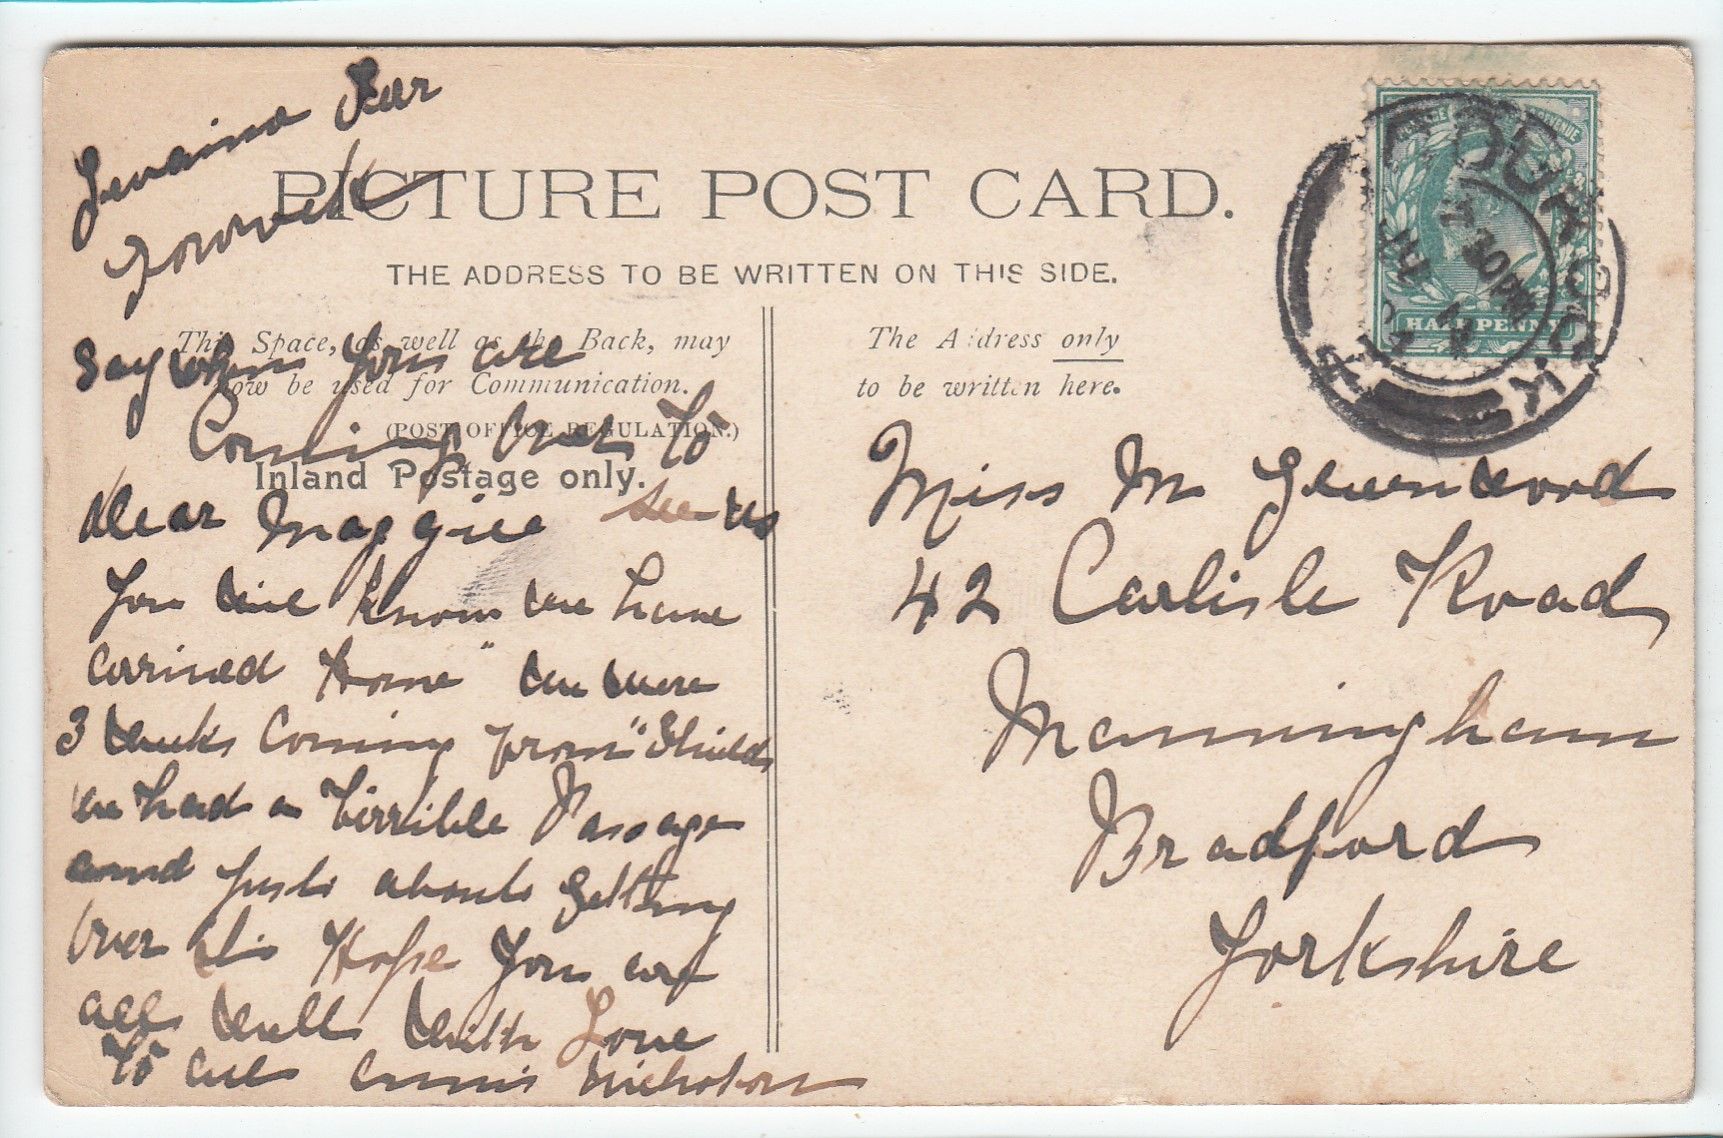 PICTURE POST CARD.
THE ADDRESS TO BE WRITTEN ON THIS SIDE.
This Space, as well as the Back, may
now be used for Communication.
(POST OFFICE REGULATION.)
Inland Postage only.
The Address only
to be written here.
HALFPENNY
7.30PM
Say when you are
Coming Over to
see us
Dear Maggie
You will know we have
arrived Home" we were
3 weeks Coming from "Shields
we had a terrible Passage
and just about getting
Over it Hope you are
all well with Love
to all Annis Nicholson
Miss M Greenwood
42 Carlisle Road
Manningham
Bradford
Yorkshire